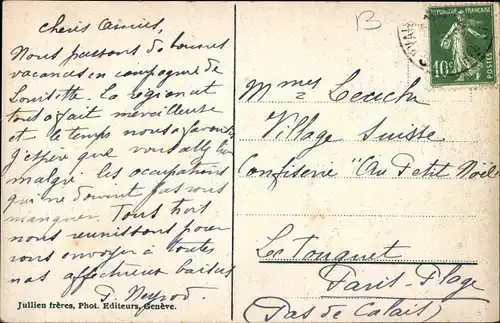 chères Amies,
Nous passons de bonnes
vacances en compagnie de
Louisette. La région est
tout à fait merveilleuse
et le temps nous a favorisé
J'espère que vous allez bien
malgré les occupations
qui ne doivent pas vous
manquer. Tous trois
nous réunissons pour
vous envoyer à toutes
nos affectueux baisers
Jullien frères, Phot. Editeurs, Genève.
B
REPUBLIQUE FRANÇAISE
10c
POSTES
Mmes
Village Suisse
Confiserie "Au Petit Noël
Le Touquet
Paris-Plage
(Pas de Calais)